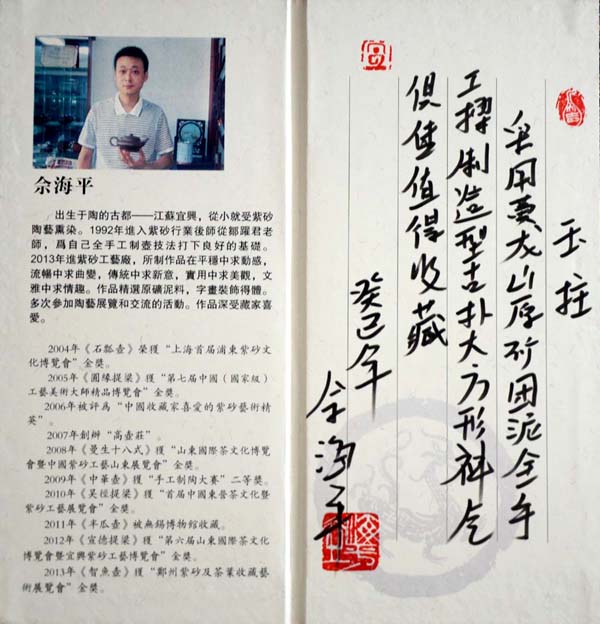 佘海平
出生于陶的古都——江蘇宜興，從小就受紫砂
陶藝熏染。1992年進入紫砂行業後師從鄒躍君老
師，爲自己全手工制壺技法打下良好的基礎。
2013年進紫砂工藝廠，所制作品在平穩中求動感，
流暢中求曲變，傳統中求新意，實用中求美觀，文
雅中求情趣。作品精選原礦泥料，字畫裝飾得體。
多次參加陶藝展覽和交流的活動。作品深受藏家喜
愛。
2004年《石瓢壺》榮獲“上海首届浦東紫砂文
化博覽會”金獎。
2005年《圓緣提梁》獲“第七届中國（國家級）
工藝美術大師精品博覽會”金獎。
2006年被評爲“中國收藏家喜愛的紫砂藝術精
英”。
2007年創辦“高壺莊”。
2008年《曼生十八式》獲“山東國際茶文化博覽
會暨中國紫砂工藝山東展覽會”金獎。
2009年《中華壺》獲“手工制陶大賽”二等獎。
2010年《吴經提梁》獲“首届中國東營茶文化暨
紫砂工藝展覽會”金獎。
2011年《半瓜壺》被無錫博物館收藏。
2012年《宣德提梁》獲“第六届山東國際茶文化
博覽會暨宜興紫砂工藝博覽會”金獎。
2013年《智魚壺》獲“鄭州紫砂及茶葉收藏藝
術展覽會”金獎。
玉柱
采用黄龙山原矿团泥全手
工擇制造型古扑大方形神气
俱佳值得收藏
癸巳年
佘海平